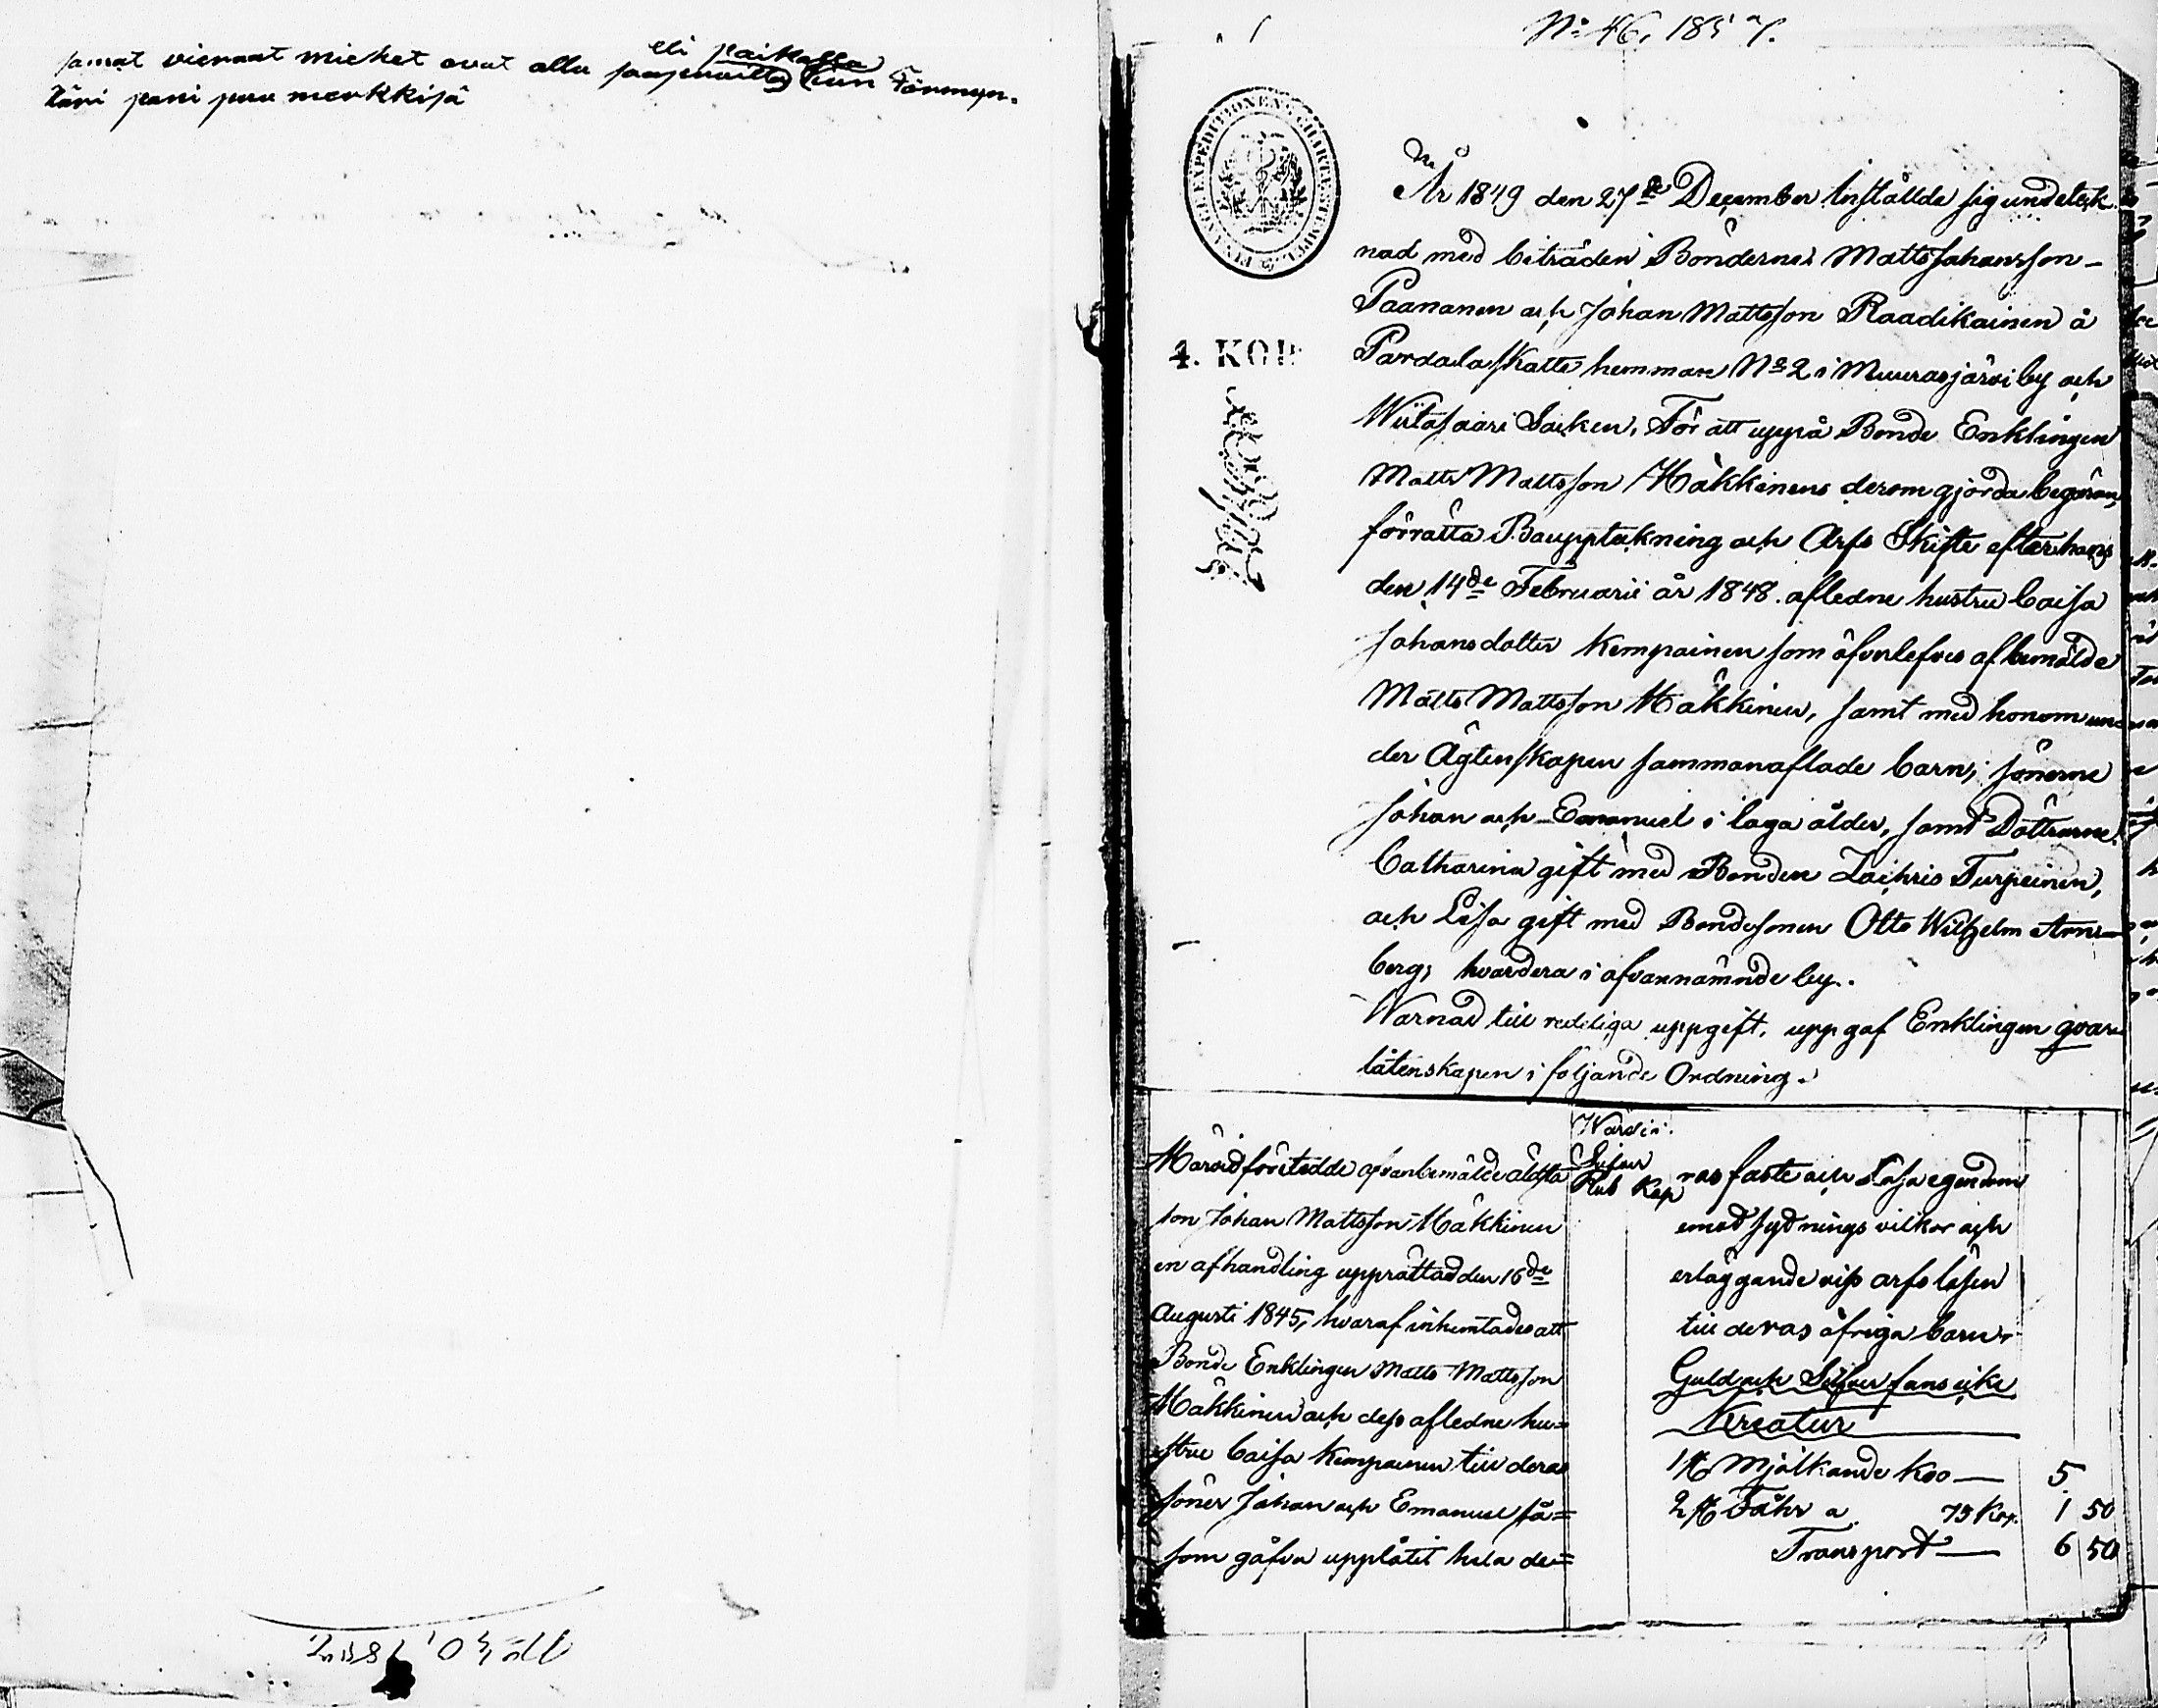 samat vieraat miehet ovat alla eli paikalla
kun Förmyn.
täri pani puu merkkisä
No 30, 185
No 46, 1857.
FINANCE EXPEDITIONENS CHARTÆ STEMPEL
4. KOP
År 1849 den 27de December Instälde sig undertek
nad med biträden Bönderne Matts Johansson
Paananen och Johan Mattsson Raadikainen å
Pardala Skatte hemman No 2 i Muurasjärvi by och
Wiitasaari Socken, För att uppå Bonde Enklingen
Matts Mattsson Häkkinens derom gjorda begäran,
förrätta Bouppteckning och Arfs Skifte efter hans
den 14de Februarii år 1848. afledne hustru Caisa
Johansdotter Kemppainen som öfverlefves af bemälde
Matts Mattsson Häkkinen, samt med honom un
der Ägtenskapen sammanaflade barn; sönerne
Johan och Emanuel i laga ålder, samt Döttrarne
Catharina gift med Bonden Zachris Turpeinen,
och Lisa gift med Bondesonen Otto Wilhelm Arns
berg; hvardera i ofvannämnde by.
Warnad till redeliga uppgift, uppgaf Enklingen qvar
låtenskapen i följande Ordning.
Härvid företedde ofvanbemälde äldsta
son Johan Mattsson Häkkinen
en afhandling upprättad den 16de
Augusti 1845, hvaraf inhemtades att
Bonde Enklingen Matts Mattsson
Häkkinen och dess afledne hu=
stru Caisa Kemppainen till deras
söner Johan och Emanuel så=
som gåfva upplåtit hela de=
Värde i
Silfver
Rub Kop
ras faste och Lösa egendom
emot sytnings vilkor och
erläggande viss arfs lösen
till deras öfriga barn
Guld och Silfver fans icke
Kreatur
1 st Mjölkande Koo — 5
2 st Fåhr a 75 Kop. 1 50
Transport — 6 50